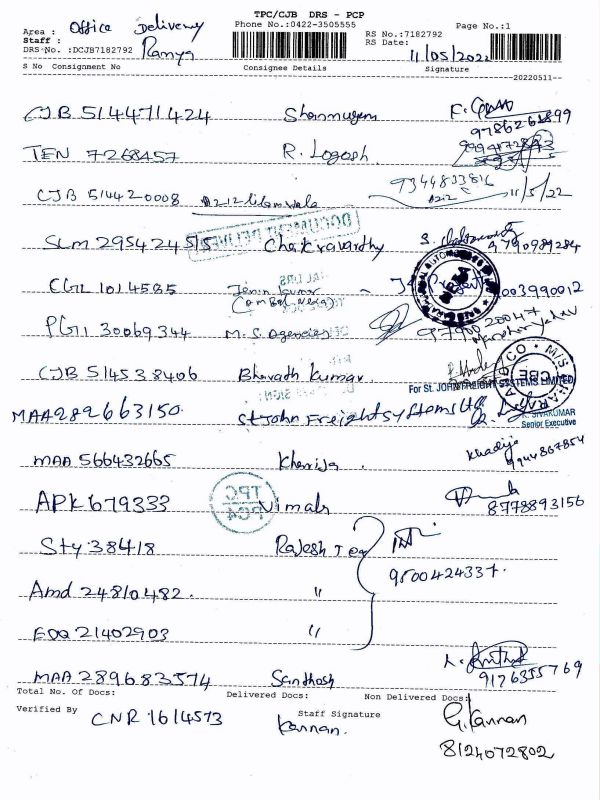 TPC/CJB DRS - PCP
Area : Office Delivery Phone No.:0422-3505555 Page No.:1
Staff : Ramya RS No.:7182792
DRS-No. :DCJB7182792 RS Date: 11/05/2022
S No Consignment No Consignee Details Signature
20220511
CJB 514471424 Shanmugam 9786261899
TEN 7268457 R. Logesh
CJB 514420008 9344833816 11/5/22
DOCUMENT DELIVERY
SLM 295424515 Chakravarthy 9790989284
CGL 1014585 Jenin kumar
PG11 30069344 M. S. Agencies
CJB 514538406 Bharath Kumar
For St. JOHN FREIGHT SYSTEMS LIMITED
MAA289663150. St John Freight Systems Ltd
SIVAKUMAR
Senior Executive
MAA 566432665 Khadija
APK 679333 Vimals 8778893156
TPC
Sty 38418 Rajesh Tea
9500424337.
Amd 24810482. "
EDQ 21402903 "
MAA 289683574 Santhosh 9176355769
Total No. Of Docs: Delivered Docs: Non Delivered Docs:
Verified By CNR 1614573 Staff Signature G. Kannan
Kannan.
8124072802